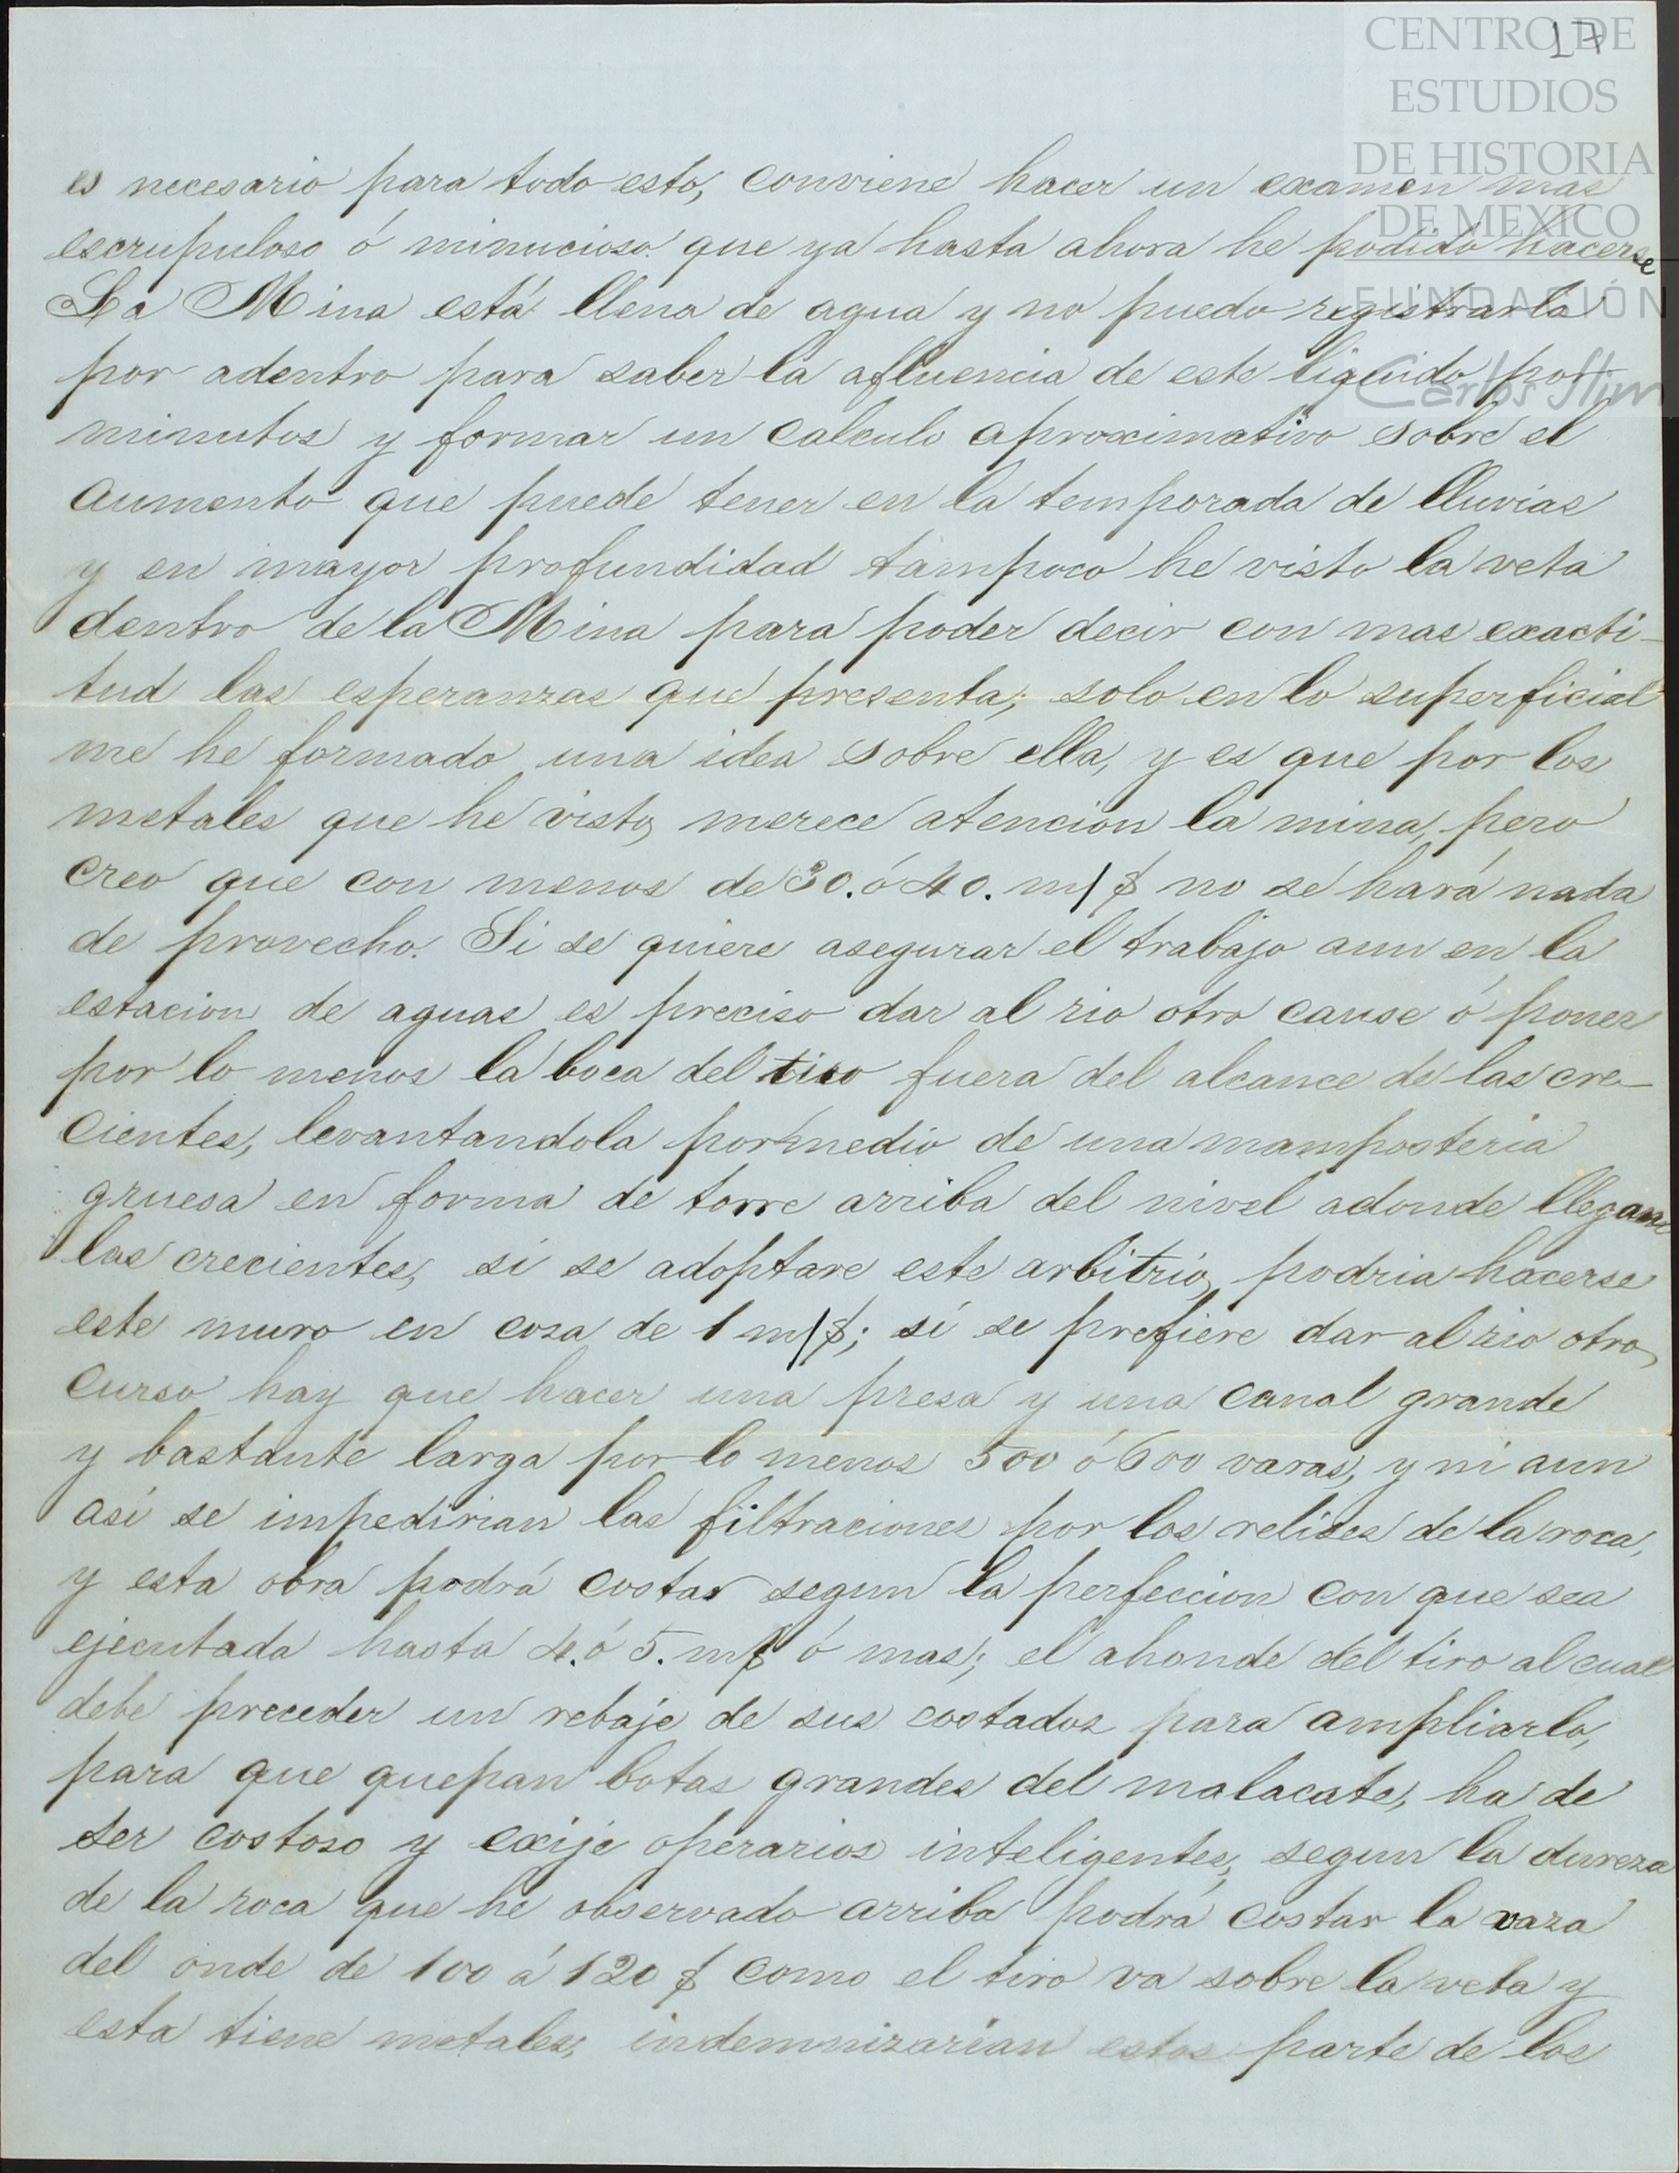 17
CENTRO DE
ESTUDIOS
DE HISTORIA
DE MEXICO
FUNDACIÓN
Carlos Slim
es necesario para todo esto, conviene hacer un examen mas
escrupuloso ó minucioso que ya hasta ahora he podido hacerse
La Mina está llena de agua y no puedo registrarla
por adentro para saber la afluencia de este liquido por
minutos y formar un calculo aproximativo sobre el
aumento que puede tener en la temporada de lluvias
y en mayor profundidad tampoco he visto la veta
dentro de la Mina para poder decir con mas exacti-
tud las esperanzas que presenta; solo en lo superficial
me he formado una idea sobre ella, y es que por los
metales que he visto, merece atencion la mina, pero
creo que con menos de 30. ó 40. m/$ no se hará nada
de provecho. Si se quiere asegurar el trabajo aun en la
estacion de aguas es preciso dar al rio otro cause ó poner
por lo menos la boca del tiro fuera del alcance de las cre-
cientes, levantandola por medio de una mamposteria
gruesa en forma de torre arriba del nivel adonde llegan
las crecientes, si se adoptare este arbitrio, podria hacerse
este muro en coza de 1 m/$; si se prefiere dar al rio otro
curso hay que hacer una presa y una canal grande
y bastante larga por lo menos 500 ó 600 varas, y ni aun
asi se impedirian las filtraciones por los relises de la roca,
y esta obra podrá costar segun la perfeccion con que sea
ejecutada hasta 4. ó 5. m/$ ó mas; el ahonde del tiro al cual
debe preceder un rebaje de sus costados para ampliarlo,
para que quepan botas grandes del malacate, ha de
ser costoso y exije operarios inteligentes, segun la dureza
de la roca que he observado arriba podrá costar la vara
del onde de 100 á 120 $ como el tiro va sobre la veta y
esta tiene metales, indemnizarian estos parte de los